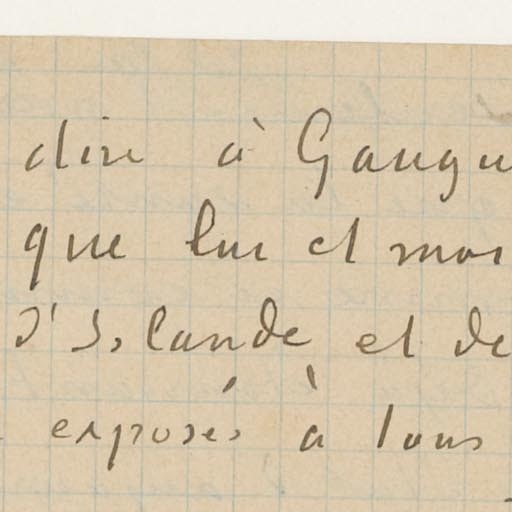 dire à Gaugu
que lui et moi
d'Islande et de
exposés à tous